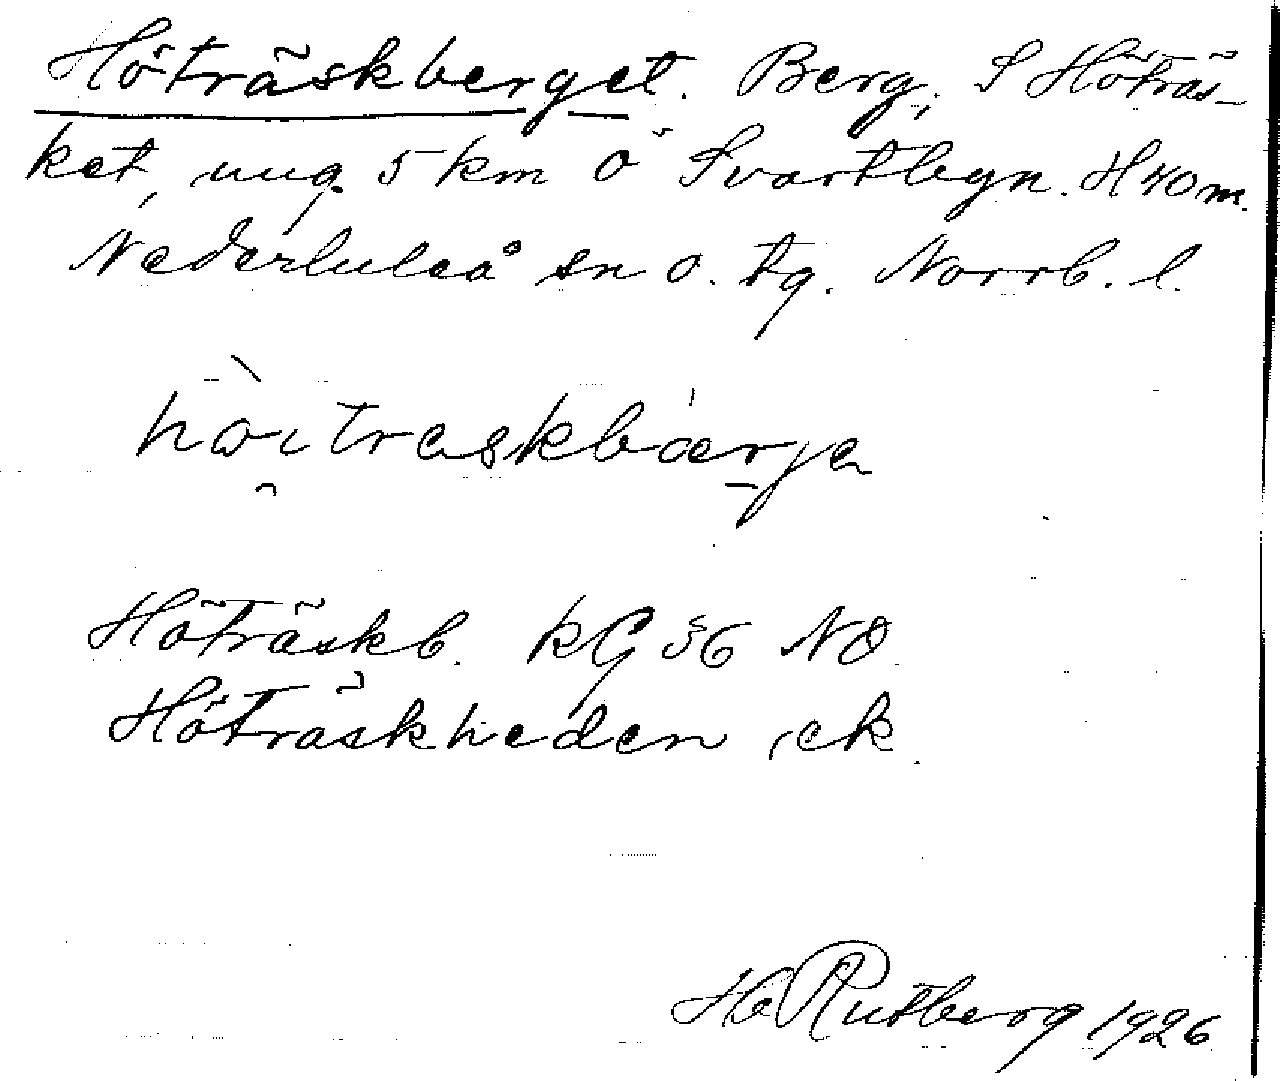 Höträskberget. Berg, S Höträs-
ket, ung. 5 km Ö Svartbyn. H 40 m.
Nederluleå sn o. tg. Norrb. l.
hòitraskbærja
Höträskb. kG 36 NO
Höträskheden, ek.
Hg Rutberg 1926